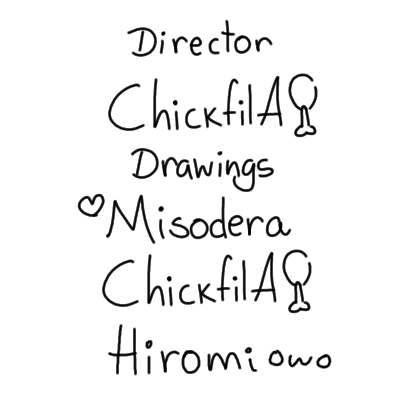 Director
ChickfilA
Drawings
Misodera
ChickfilA
Hiromi owo